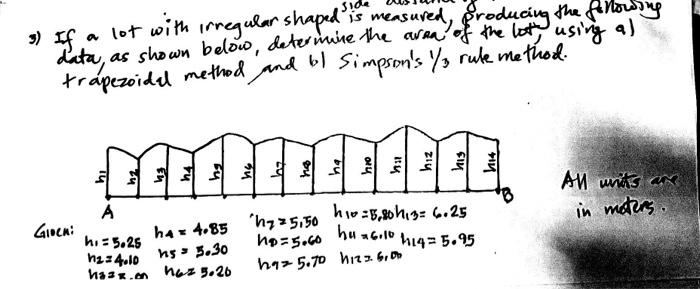 side
3) If a lot with irregular shaped is measured, producing the following
data, as shown below, determine the area of the lot, using a)
trapezoidal method and b) Simpson's 1/3 rule method.
h1 h2 h3 h4 h5 h6 h7 h8 h9 h10 h11 h12 h13 h14
A B
All units are
in meters.
Given:
h1=5.25 h4=4.85 h7=5.50 h10=5.80 h13=6.25
h2=4.10 h5=5.30 h8=5.60 h11=6.10 h14=5.95
h6=5.20 h9=5.70 h12=6.00